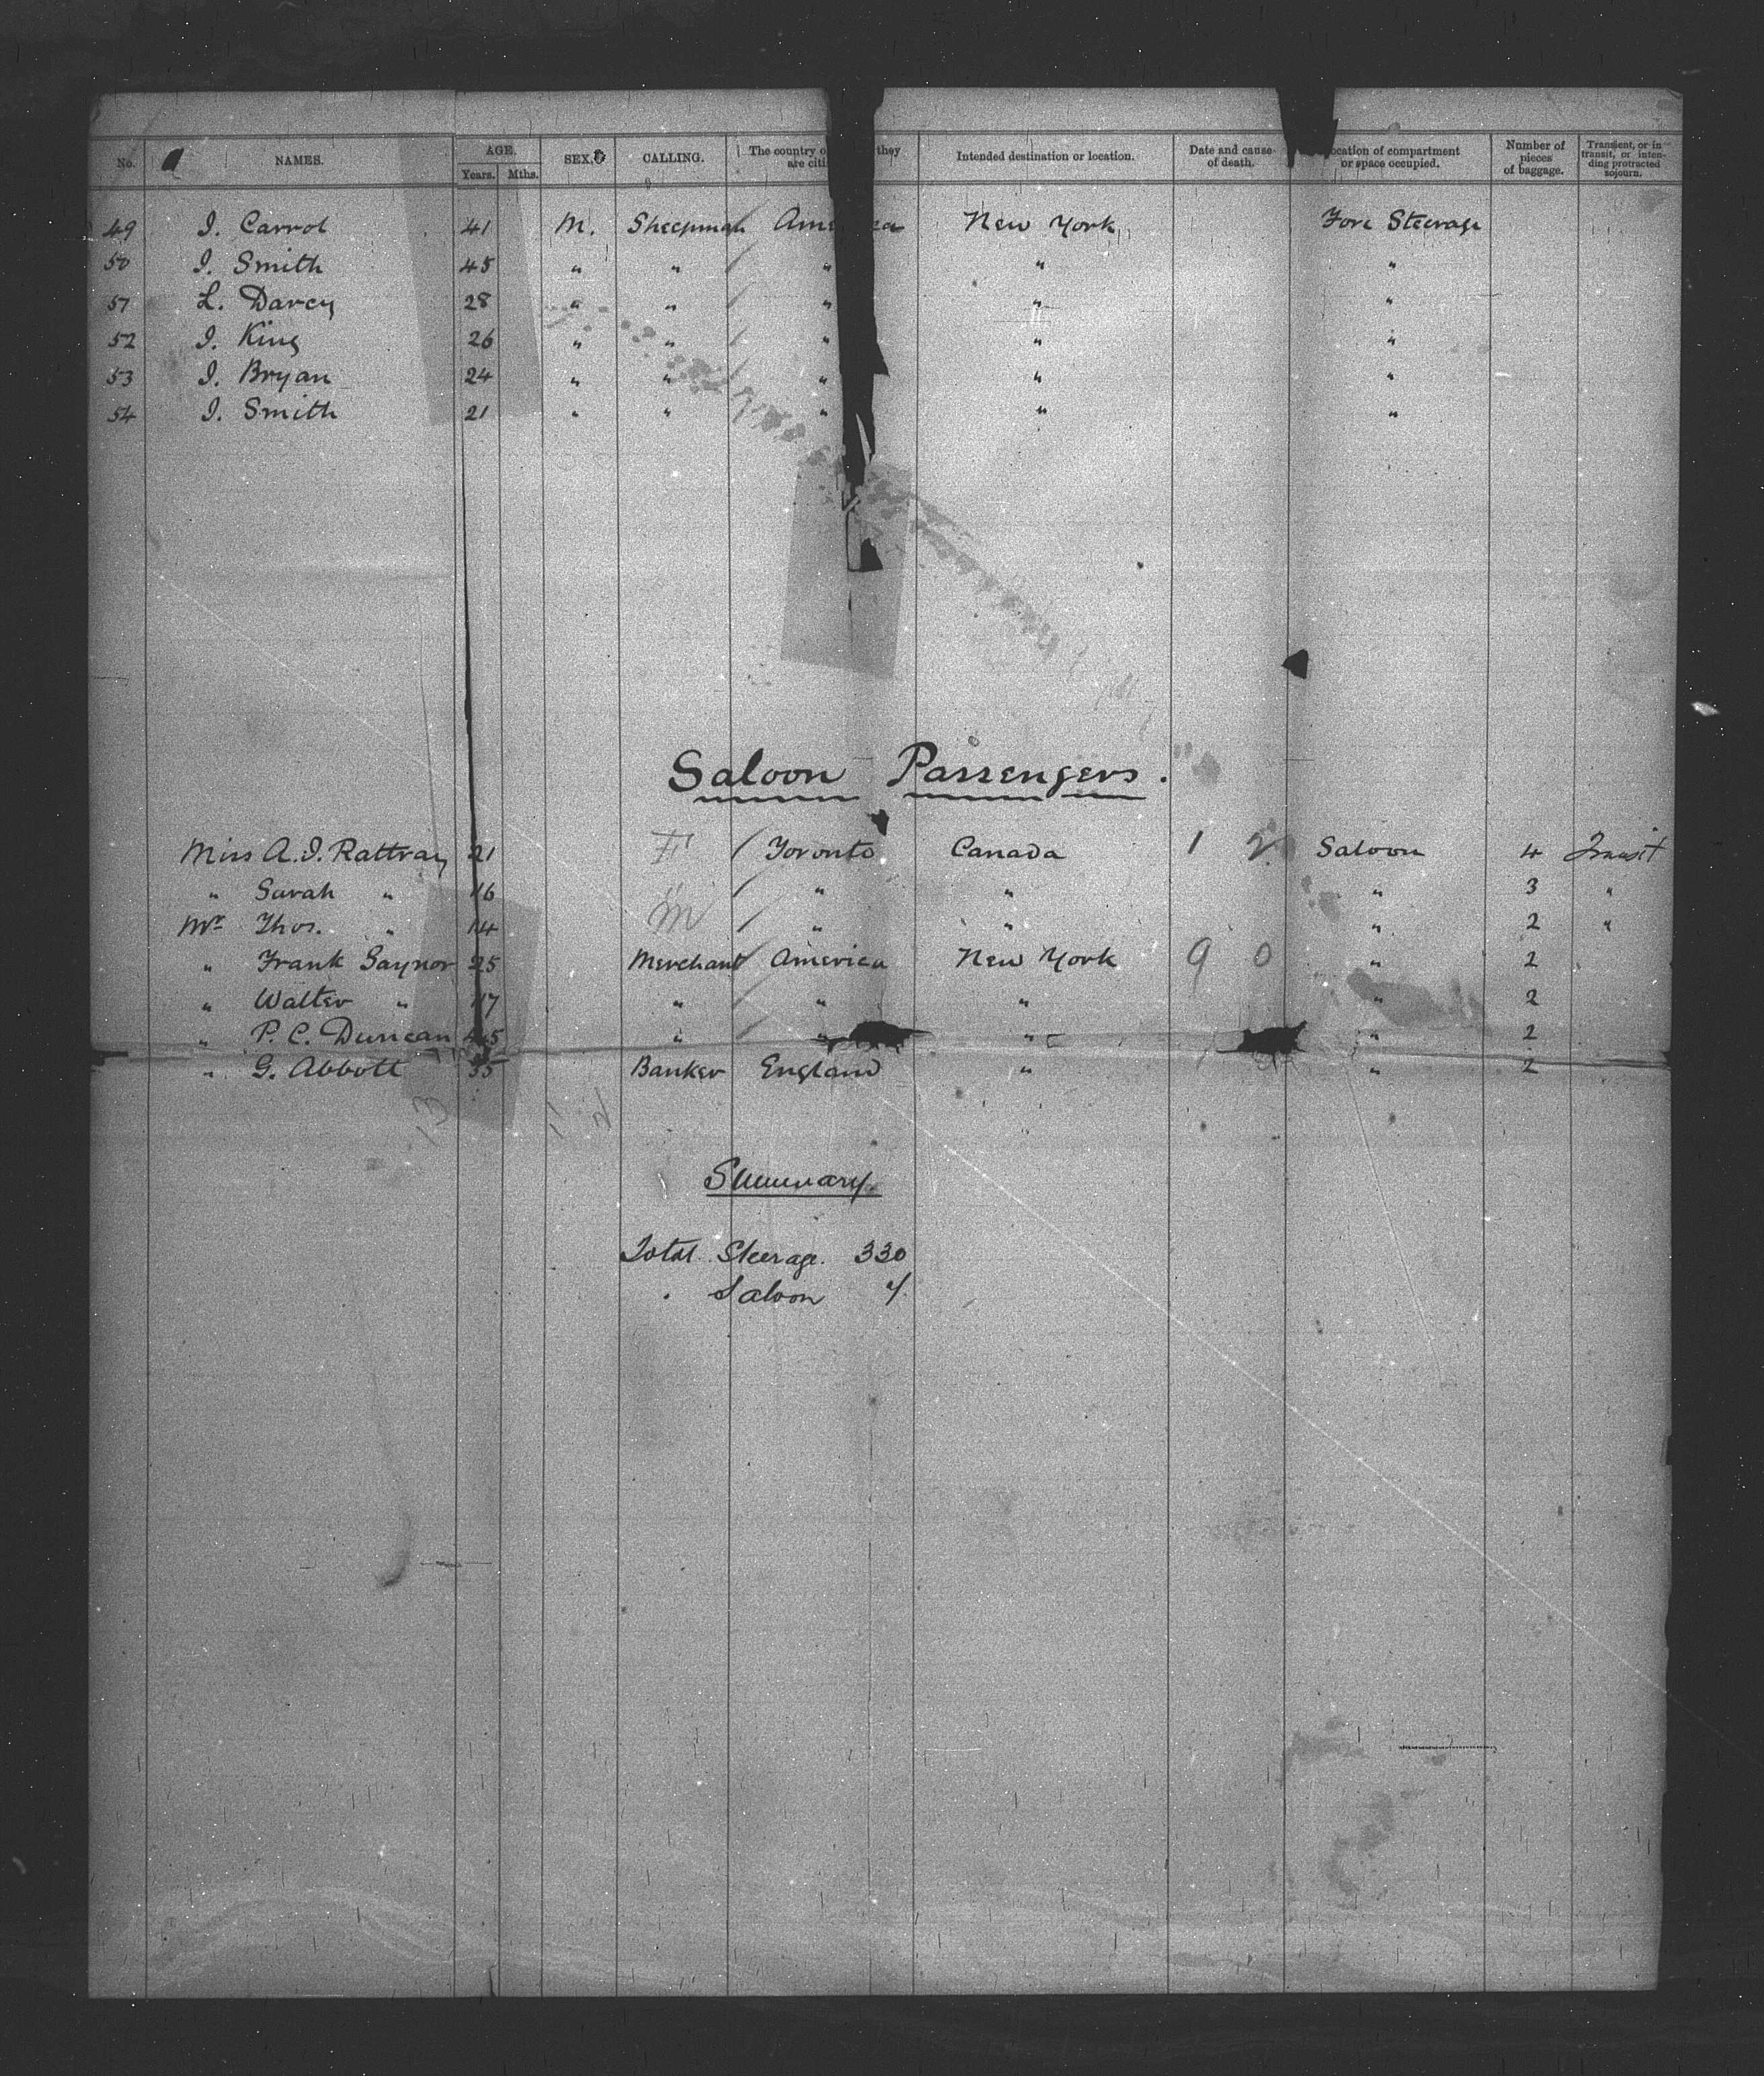 No. NAMES. AGE. Years. Mths. SEX. CALLING. The country o they are citi Intended destination or location. Date and cause of death. ocation of compartment or space occupied. Number of pieces of baggage. Transient, or in transit, or intending protracted sojourn.
49 J. Carrol 41 M. Sheepman Ame ca New York Fore Steerage
50 J. Smith 45 " " " " "
51 L. Darcy 28 " " " " "
52 J. King 26 " " " " "
53 J. Bryan 24 " " " " "
54 J. Smith 21 " " " " "
Saloon Passengers.
Miss A. J. Rattray 21 F Toronto Canada 1 2 Saloon 4 Transit
" Sarah " 16 " " " " 3 "
Mr Thos. " 14 M " " " 2 "
" Frank Gaynor 25 Merchant America New York 9 0 " 2
" Walter " 17 " " " " 2
" P. C. Duncan 45 " " " " 2
" G. Abbott 35 Banker England " " 2
13 11 2
Summary
Total Steerage. 330
. Saloon 7